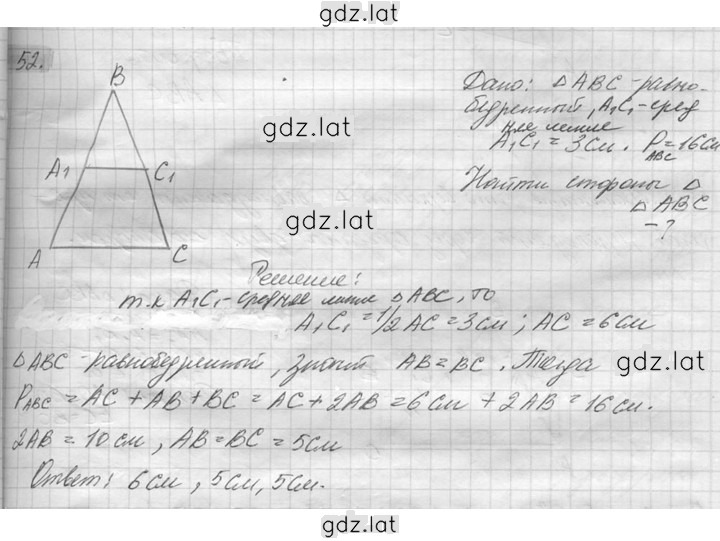 gdz.lat
52.
B
A₁ C₁
A C
gdz.lat
gdz.lat
Дано: △ABC-равно-
бедренный, A₁C₁-сред
няя линия
A₁C₁ = 3см. P_ABC = 16см
Найти стороны △
△ABC
-?
Решение:
т.к A₁C₁-средняя линия △ABC, то
A₁C₁ = 1/2 AC = 3см; AC = 6см
△ABC-равнобедренный, значит AB = BC. Тогда
gdz.lat
P_ABC = AC + AB + BC = AC + 2AB = 6см + 2AB = 16см.
2AB = 10см, AB = BC = 5см
Ответ: 6см, 5см, 5см.
gdz.lat
gdz.lat